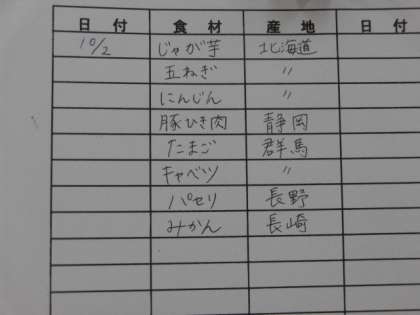 日付 食材 産地 日付
10/2 じゃが芋 北海道
玉ねぎ 〃
にんじん 〃
豚ひき肉 静岡
たまご 群馬
キャベツ 〃
パセリ 長野
みかん 長崎